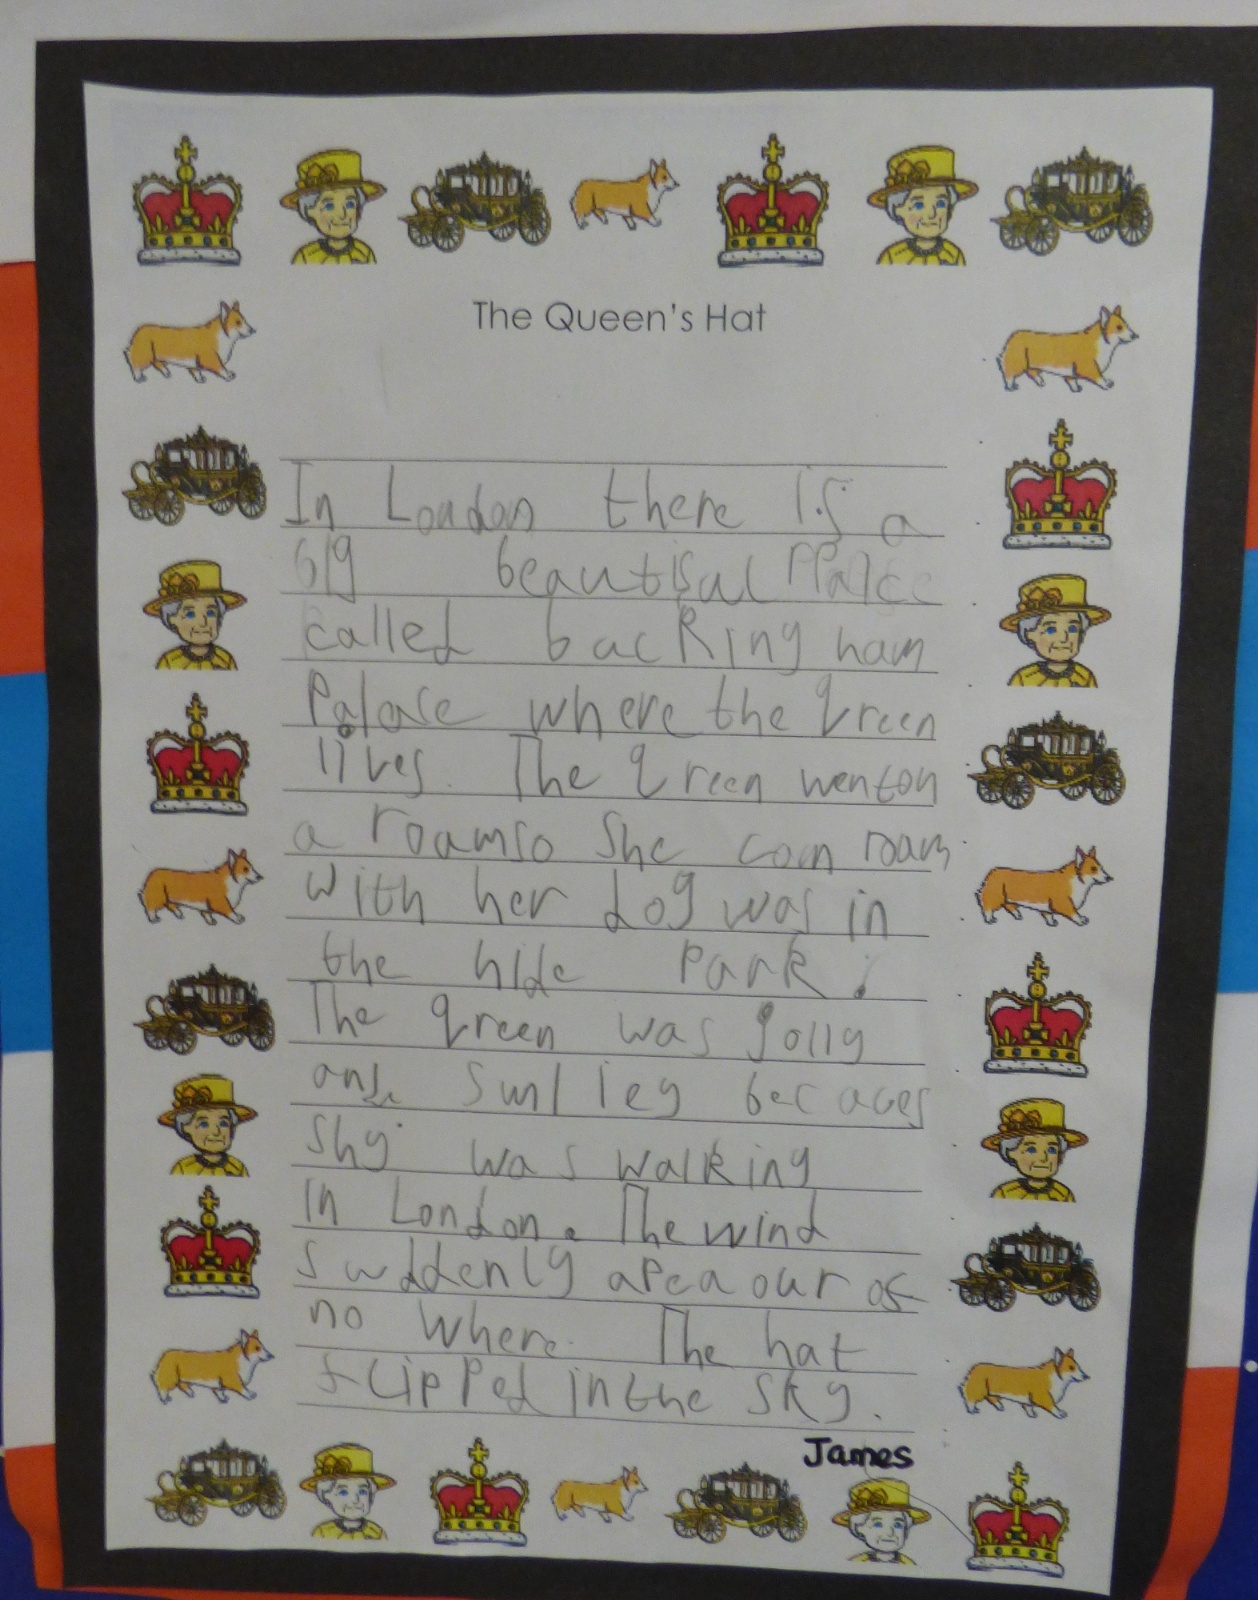 The Queen's Hat
In London there is a
big beautisal PPalce
called backing ham
Palase where the qreen
lives. The qreen wenton
a roamso She can roam
With her dog was in
the hide park.
The qreen was jolly
and smlley becaues
Shy was walking
In London. The wind
Swddenly apea our of
no where. The hat
flipped in the sky.
James